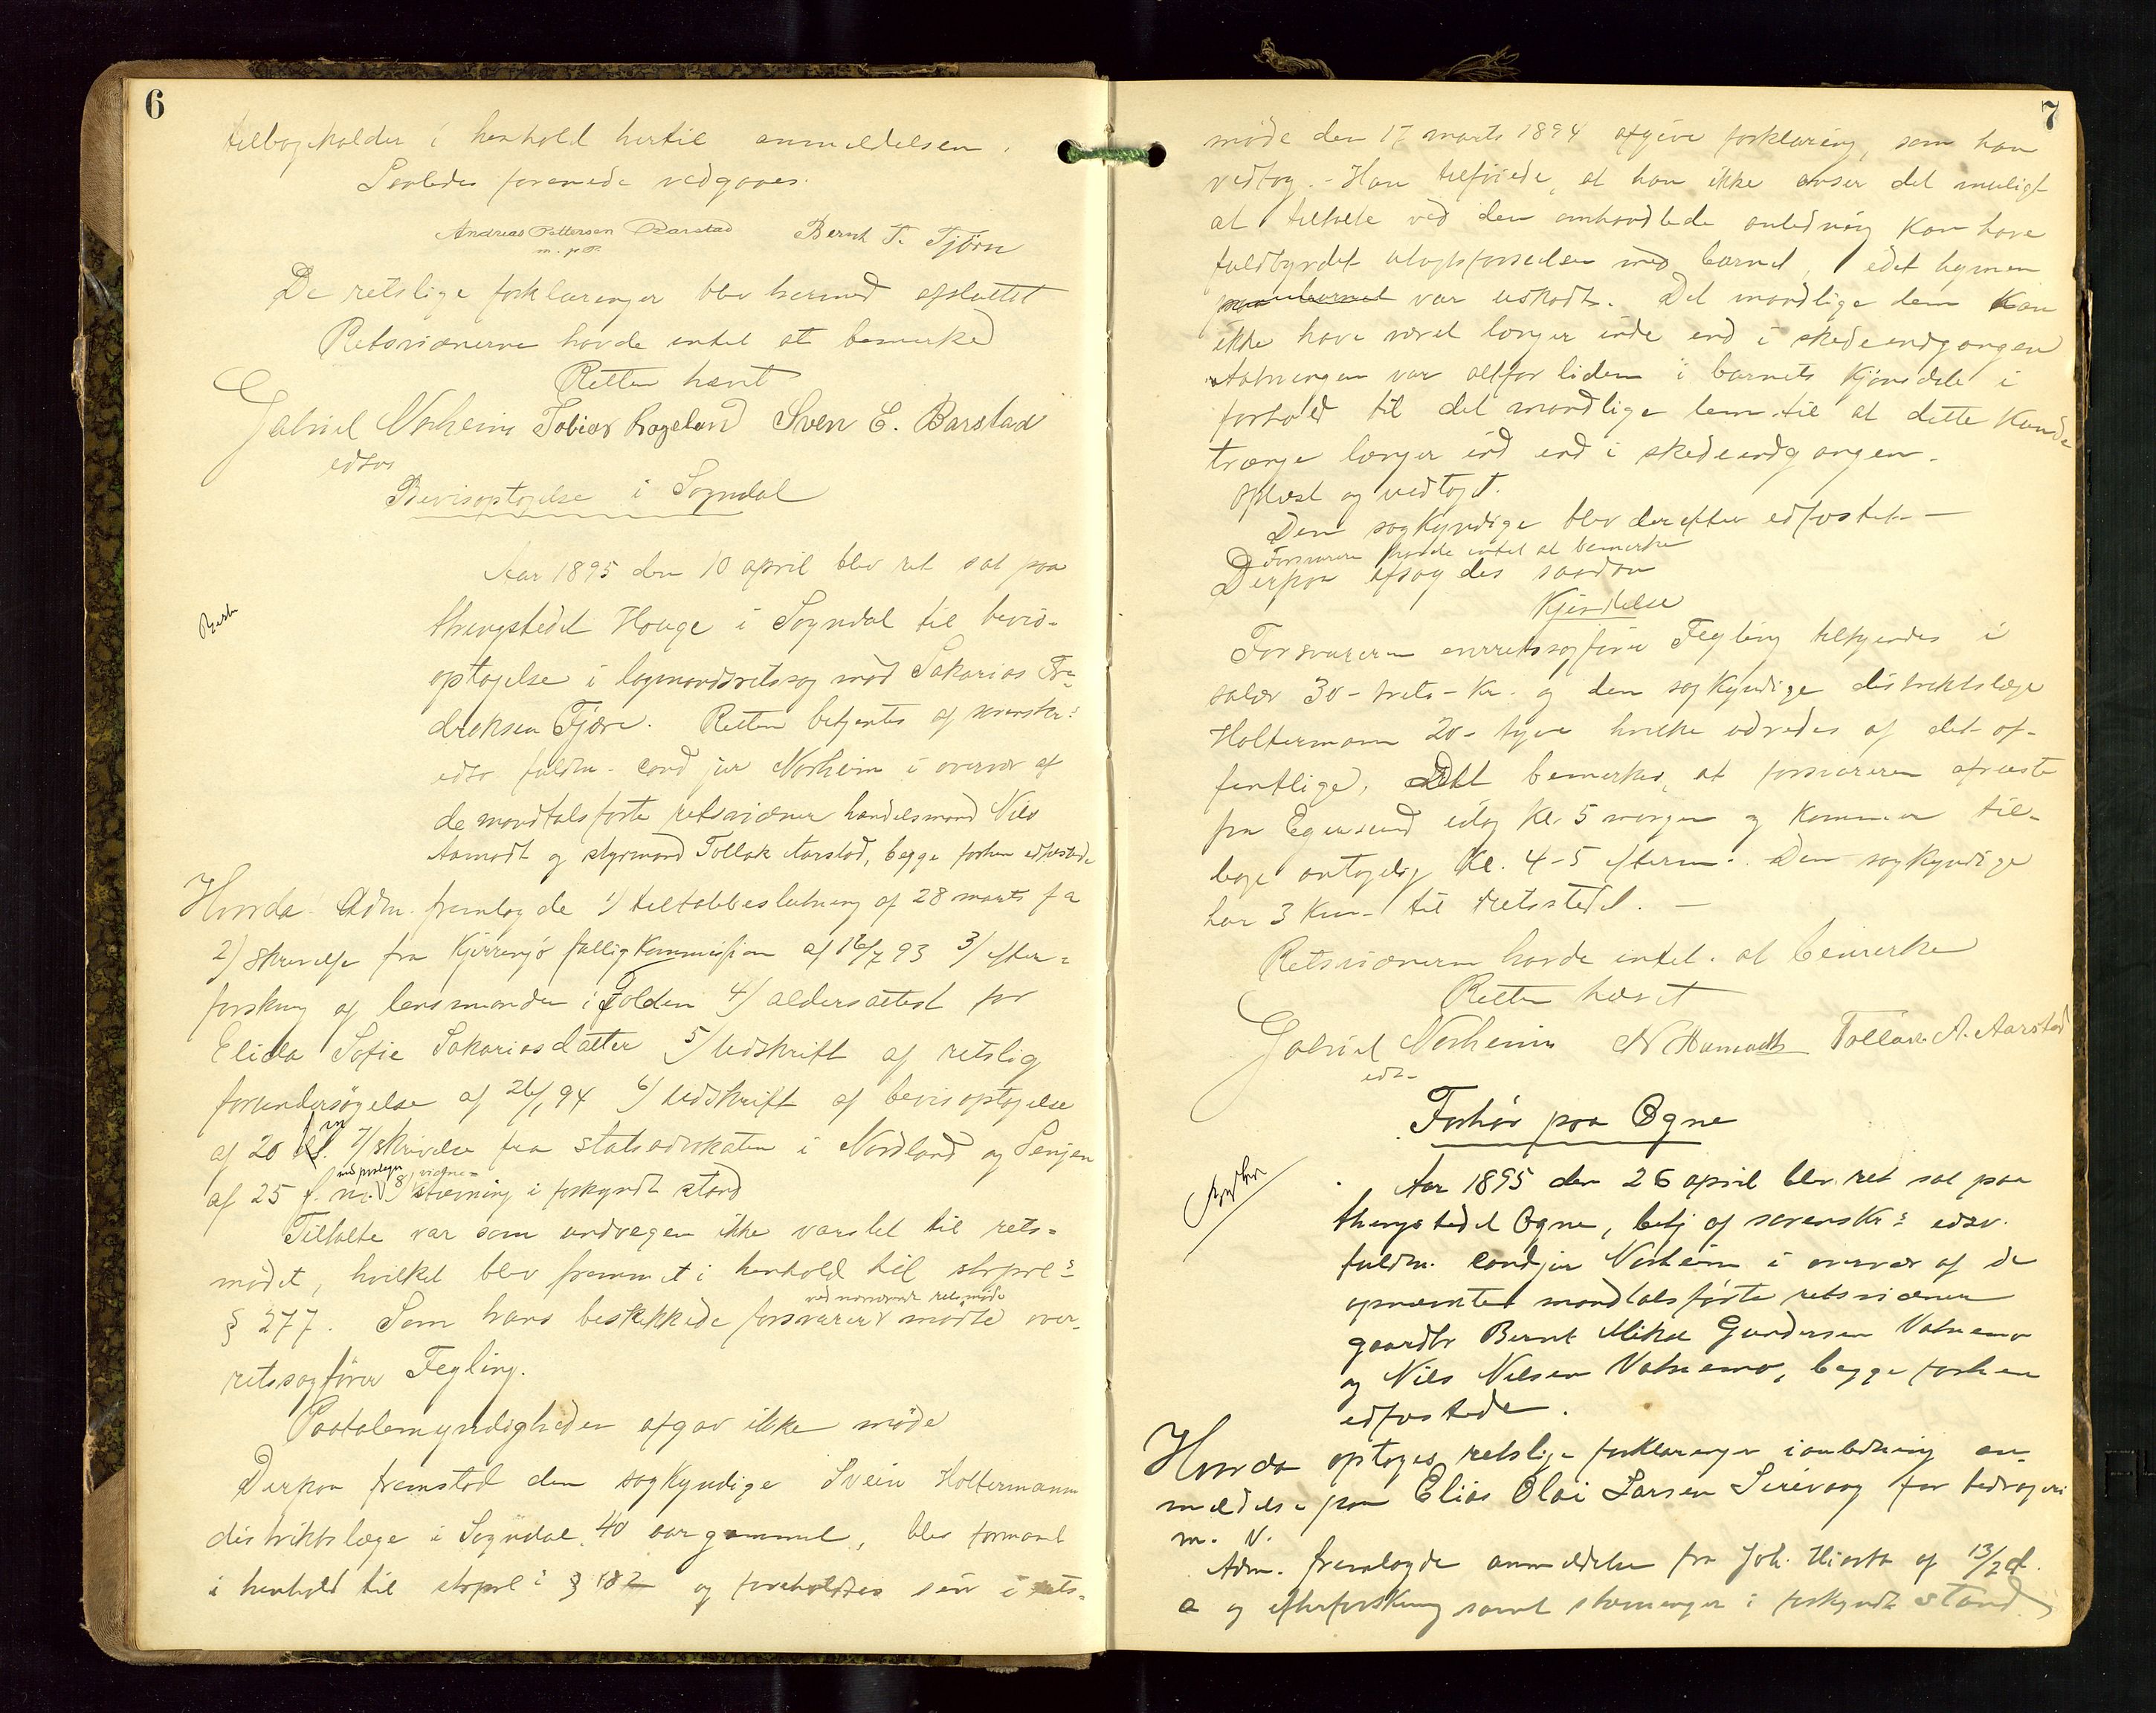 6
tilbageholder i henhold hertil anmeldelsen.
Saaledes passerede vedgaaes.
Andreas Pettersen Barstad Bernt T. Tjörn
m. p. P.
De retslige forklaringer blev hermed afsluttet
Retsvidnerne havde intet at bemerke
Retten hævet
Gabriel Norheim Tobias Rageland Sven E. Barstad
edsv
Bevisoptagelse i Sogndal
Aar 1895 den 10 april blev ret sat paa
thingstedet Hauge i Sogndal til bevis-
optagelse i lagmandsretssag mod Sakarias Fre-
driksen Tjøre. Retten betjentes af sorenskr:s
edsv fuldm. cand jur Norheim i overvær af
de mandtalsførte retsvidner handelsmand Nils
Aamodt og styrmand Tollak Aarstad, begge forhen edfæstede
Hvorda Adm. fremlagde 1) tiltalebeslutning af 28 marts f a
2) skrivelse fra Kjerringö fattigkommission af 16/7 93 3) efter-
forskning af lensmanden i Folden 4) aldersattest for
Elida Sofie Sakariasdatter 5) Udskrift af retslig
forundersøgelse af 26/1 94 6) Udskrift af bevisoptagelse
af 20 m 7) skrivelse fra statsadvokaten i Nordland og Senjen
med paategn. vidne-
af 25 f. m. 8) stævning i forkyndt stand
Tiltalte var som undvegen ikke varslet til rets-
mødet, hvilket blev fremmet i henhold til strprl:s
ved nærværende retsmøde
§ 277. Som hans beskikkede forsvarer mødte over-
retssagfører Fegling.
Paatalemyndigheden afgav ikke møde
Derpaa fremstod den sagkyndige Svein Holtermann
distriktslæge i Sogndal, 40 aar gammel, blev formanet
i henhold til strprl:s § 182 og foreholdtes sin i rets-
7
møde den 17 marts 1894 afgivne forklaring, som han
vedtog. - Han tilføiede, at han ikke anser det muligt
at tiltalte ved den omhandlede anledning kan have
fuldbyrdet utugtsforseelsen med barnet, idet hymen
var uskadt. Det mandlige lem kan
ikke have været længer inde end i skedeindgangen
Aabningen var altfor liden i barnets kjønsdele i
forhold til det mandlige lem til at dette kunde
trænge længer ind end i skedeindgangen.
Oplæst og vedtaget.
Den sagkyndige blev derefter edfæstet. -
Forsvareren havde intet at bemerke
Derpaa afsagdes saadan
Kjendelse
Forsvareren overretssagfører Fegling tilkjendes i
salær 30 - treti - Kr. og den sagkyndige distriktslæge
Holtermann 20 - tyve hvilke udredes af det of-
fentlige. Det bemerkes, at forsvareren afreiste
fra Egersund idag Kl. 5 morgen og kommer til-
bage antagelig Kl. 4-5 efterm. Den sagkyndige
har 3 Km. til retsstedet. -
Retsvidnerne havde intet at bemerke
Retten hævet
Gabriel Norheim N Aamodt Tollak A. Aarstad
edsv
Forhør paa Ogne
Aar 1895 den 26 april blev ret sat paa
thingstedet Ogne, betj af sorenskr:s edsv.
fuldm. cand jur Norheim i overvær af de
opnævnte mandtalsførte retsvidner
gaardbr Bernt Mikal Gundersen Vatnemo
og Nils Nilsen Vatnemo, begge forhen
edfæstede.
Hvorda optoges retslige forklaringer i anledning an-
meldelse paa Elias Olai Larsen Sirevaag for bedrageri
m. v.
Adm. fremlagde anmeldelse fra Joh. Hiorta af 13/2 d.
a og efterforskning samt stævninger i forkyndt stand